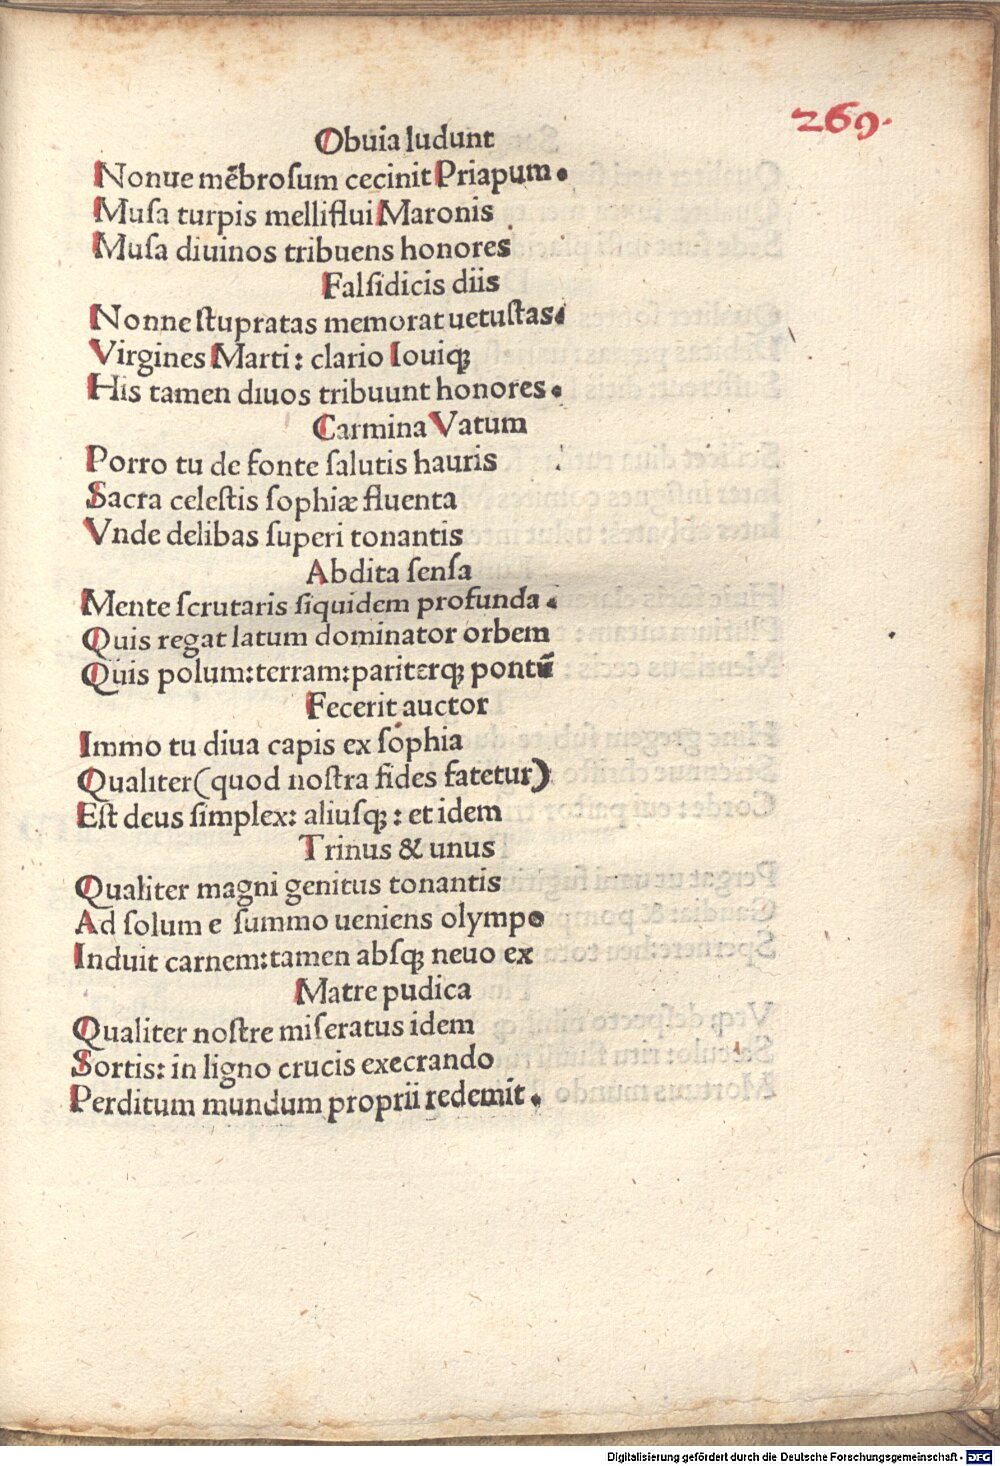 269.
Obuia ludunt
Nonue mẽbroſum cecinit Priapum.
Muſa turpis melliflui Maronis
Muſa diuinos tribuens honores
Falſidicis diis
Nonne ſtupratas memorat uetuſtas.
Virgines Marti: clario Iouiqꝫ
His tamen diuos tribuunt honores.
Carmina Vatum
Porro tu de fonte ſalutis hauris
Sacra celeſtis ſophiæ fluenta
Vnde delibas ſuperi tonantis
Abdita ſenſa
Mente ſcrutaris ſiquidem profunda.
Quis regat latum dominator orbem
Quis polum:terram:pariterqꝫ pontũ
Fecerit auctor
Immo tu diua capis ex ſophia
Qualiter(quod noſtra fides fatetur)
Eſt deus ſimplex: aliuſqꝫ: et idem
Trinus & unus
Qualiter magni genitus tonantis
Ad ſolum e ſummo ueniens olympo
Induit carnem:tamen abſqꝫ neuo ex
Matre pudica
Qualiter noſtre miſeratus idem
Sortis: in ligno crucis execrando
Perditum mundum proprii redemit.
Digitalisierung gefördert durch die Deutsche Forschungsgemeinschaft - DFG